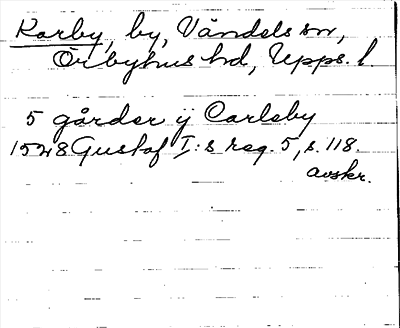 Karby, by, Vändels sn,
Örbyhus hd, Upps. l.
5 gårder ÿ Carlsby
1528 Gustaf I:s reg. 5, s. 118.
avskr.